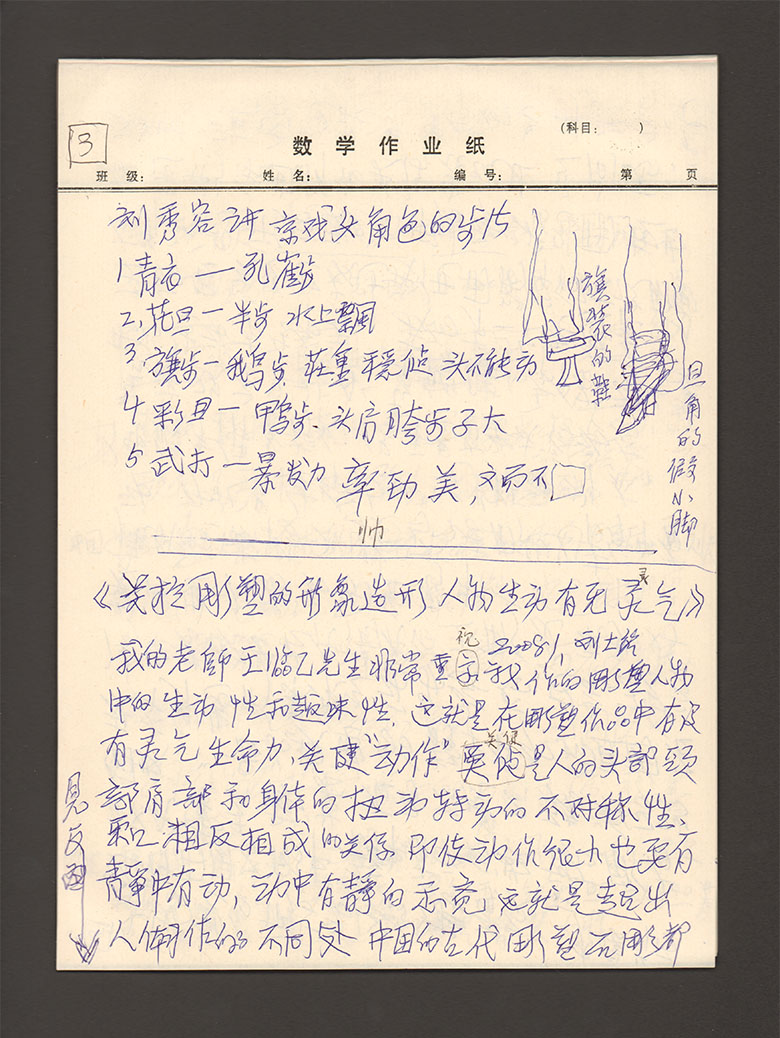 3
(科目: )
数学作业纸
班 级: 姓 名: 编 号: 第 页
刘秀容讲京戏头角色的步片
1青衣—孔
2,花旦—半步 水上飘
3.旗步—鹅步 莊重 穩 头不能动
4彩旦—鸭步、头肩胯步子大
5武打—暴发力 率劲美,文而不□
帅
旗装的鞋
旦角的假小脚
《关于彫塑的形象造形 人物生动有无灵气》
灵
2008.1,刘士铭
我的老師王临乙先生非常重视我作的彫塑人物
视
中的生动性和趣味性,这就是在彫塑作品中有没
有灵气生命力,关键"动作"是人的头部颈
关键
部肩部和身体的扭动转动的不对称性、
和相反相成的关係 即使动作很大也要有
靜中有动,动中有靜的 这就是 出
人体作的不同处 中国的古代彫塑石彫都
见反面